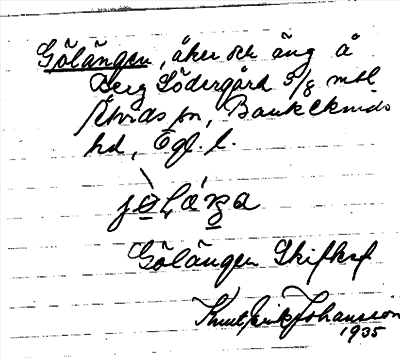 Gölängen, åker och äng å
Berg Södergård 5/8 mtl
Åtvids sn, Bankekinds
hd, Ögl. l.
Gölängen Skifksf
Knut Erik Johansson
1935